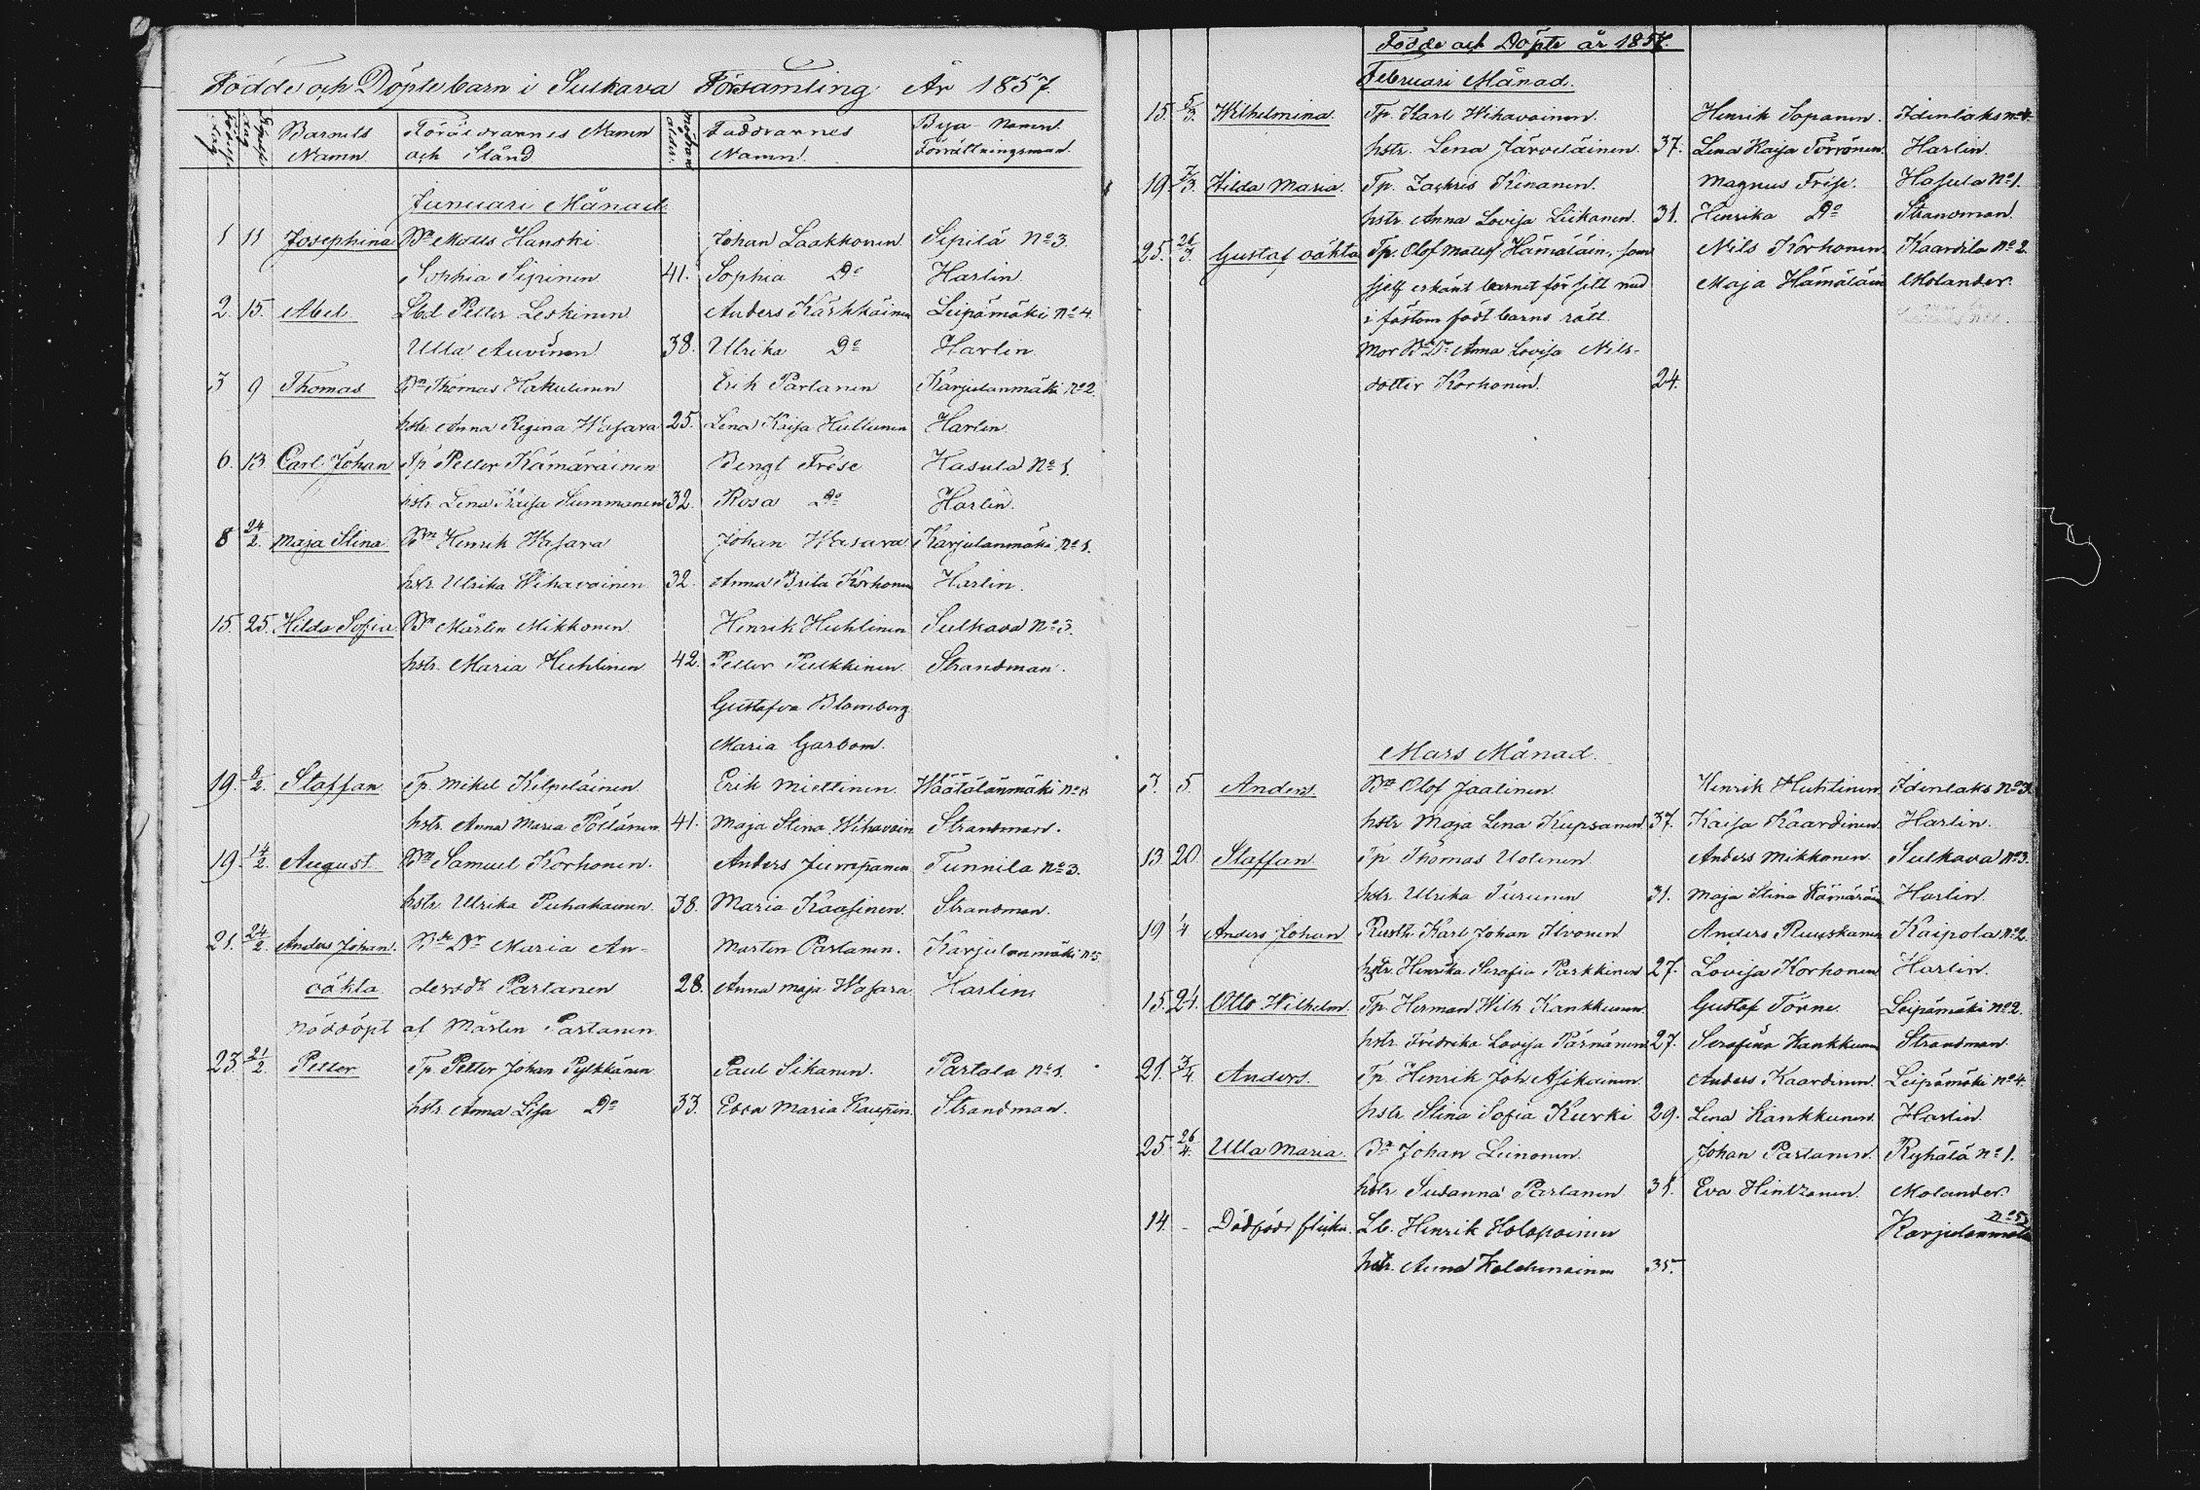 Födde och Döpte barn i Sulkava Församling År 1857.
Barnets Namn. Föräldrarnes Namn och Stånd Moderns ålder. Faddrarnes Namn. Bya Namn. Förrättningsmad.
Januari Månad
1 11 Josephina Bn Matts Hanski Johan Laakkonen Sipilä No 3.
Sophia Sipinen 41. Sophia Do Harlin
2. 15. Abel Lbd Petter Leskinen Anders Kärkkäinen Leipämäki No 4.
Ulla Auvinen 38. Ulrika Do Harlin
3 9 Thomas Bn Thomas Hakulinen Erik Partanen Karjulanmäki No 2.
hstr. Anna Regina Wasara 25. Lena Kaisa Hullunen Harlin
6. 13 Carl Johan Tp Petter Kämäräinen Bengt Frese Hasula No 1.
hstr. Lena Kaisa Summanen 32. Rosa Do Harlin.
8 24/2. Maja Stina Bn Henrik Wasara Johan Wasara Karjulanmäki No 1.
hstr. Ulrika Wihavainen 32. Anna Brita Korhonen Harlin.
15. 25. Hilda Sofia Bn Mårtin Mikkonen Henrik Huhlinen Sulkava No 3.
hstr. Maria Huhlinen 42. Petter Pulkkinen. Strandman.
Gustafva Blomberg
Maria Garbom.
19. 8/2. Staffan Tp. Mikel Kilpeläinen Erik Miettinen. Wäätälänmäki No 8
hstr. Anna Maria Pöllänen 41. Maja Stina Wihavain Strandman.
19. 14/2. August Bn Samuel Korhonen. Anders Jurvanen Tunnila No 3.
hstr. Ulrika Puhakainen. 38. Maria Kaasinen. Strandman.
21. 24/2. Anders Johan. Bde Dr Maria An- Martin Partanen. Karjulanmäki No 5
oäkta dersdr Partanen 28. Anna Maja Wasara Harlin.
nöddöpt af Mårten Partanen.
23. 21/2. Petter Tp. Petter Johan Pylkkänen Paul Sikanen. Partala No 1.
hstr. Anna Lisa Do 33. Eva Maria Kaupin. Strandman.
Födde och Döpte år 1857.
Februari Månad.
15. 5/3. Wilhelmina Tp. Karl Wihavainen. Henrik Sopanen. Idenlaks No 4.
hstr. Lena Järveläinen. 37. Lena Kaisa Törrönen. Harlin.
19 7/3. Hilda Maria. Tp. Zachris Kinanen. Magnus Frese. Hasula No 1.
hstr. Anna Lovisa Liikanen. 31. Henrika Do Strandman.
25. 26/3. Gustaf oäkta Tp. Olof Matts Hämäläin, som Nils Korhonen. Kaartila No 2.
sjelf erkänt barnet för sitt med Maja Hämäläin Molander.
i fästom födt barns rätt.
Mor Bde Dr Anna Lovisa Nils-
dotter Korhonen. 24.
Mars Månad.
3. 5. Anders. Bn Olof Jaatinen. Henrik Huhtinen. Idenlaks No 3.
hstr. Maja Lena Kupsanen. 37. Kaisa Kaartinen. Harlin.
13 20 Staffan Tp Thomas Uotinen Anders Mikkonen. Sulkava No 3.
hstr. Ulrika Turunen 31. Maja Stina Kämäräin Harlin.
19 1/4 Anders Johan Rusth. Karl Johan Ilvonen Anders Ruuskanen Kaipola No 2.
hstr. Henrika Serafia Parkkinen 27. Lovisa Korhonen Harlin.
15. 24. Otto Wilhelm. Tp. Herman Wilh. Kankkunen. Gustaf Törne. Leipämäki No 2.
hstr. Fredrika Lovisa Pärnänen 27. Serafina Kankkunen Strandman.
21. 3/4 Anders. Tp. Henrik Joh Asikainen. Anders Kaartinen. Leipämäki No 4.
hstr. Stina Sofia Kurki 29. Lena Kankkunen. Harlin.
25. 26/4. Ulla Maria. Bn Johan Leinonen. Johan Partanen. Ryhälä No 1.
hstr. Susanna Partanen 31. Eva Hintzanen. Molander.
14. - Dödfödt flicka. Lb. Henrik Holopainen Karjulanmäki No 5
hstr. Anna Kolehmainen 35.